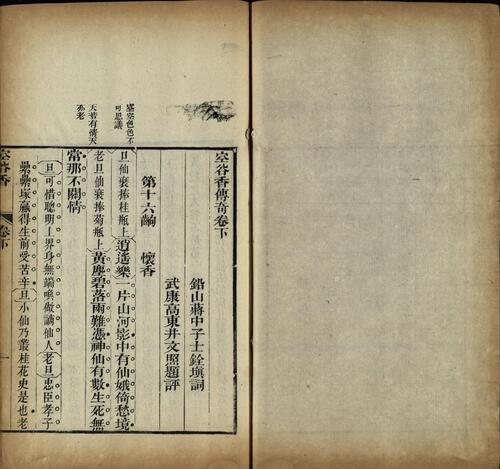 空谷香傳奇卷下
鉛山蔣中子士銓塡詞
武康高東井文照題評
第十六齣 懷香
旦仙裝捧桂瓶上逍遙樂一片山河影中有仙娥倚愁境
老旦仙裝捧菊瓶上黃塵碧落兩難憑神仙有數生死無
常那不關情
旦可惜聰明上界身無端喚做謫仙人老旦忠臣孝子
纍纍塚贏得生前受苦辛旦小仙乃叢桂花史是也老
空空色色不
可思議
天若有情天
亦老
空谷香
卷下
一